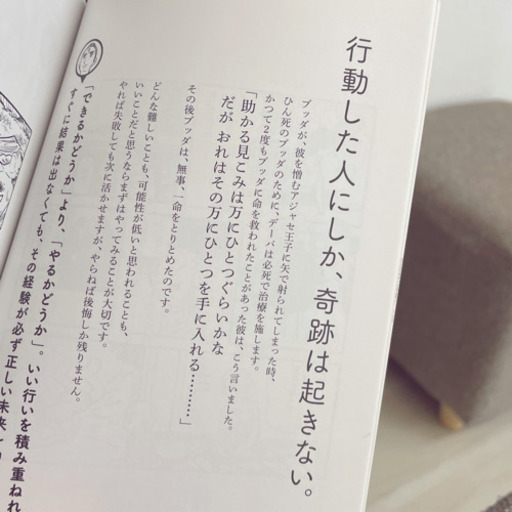 行動した人にしか、奇跡は起きない。
ブッダが、彼を憎むアジャセ王子に矢で射られてしまった時、
ひん死のブッダのために、デーバは必死で治療を施します。
かつて2度もブッダに命を救われたことがあった彼は、こう言いました。
「助かる見こみは万にひとつぐらいかな
だが おれはその万にひとつを手に入れる………」
その後ブッダは、無事、一命をとりとめたのです。
どんな難しいことも、可能性が低いと思われることも、
いいことだと思うならまずはやってみることが大切です。
やれば失敗しても次に活かせますが、やらねば後悔しか残りません。
「できるかどうか」より、「やるかどうか」。いい行いを積み重ねれ
すぐに結果は出なくても、その経験が必ず正しい未来